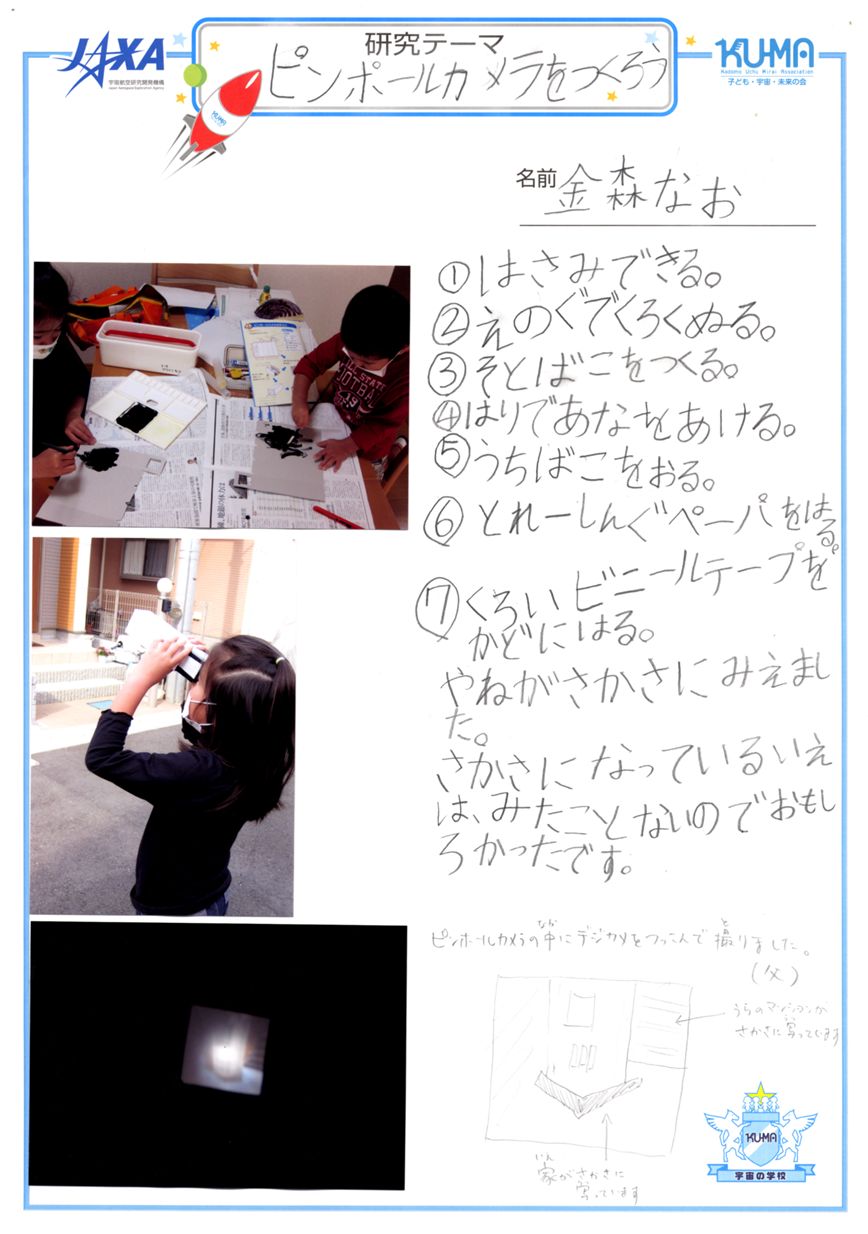 JAXA
宇宙航空研究開発機構
Japan Aerospace Exploration Agency
研究テーマ
ピンホールカメラをつくろう
KU-MA
Kodomo Uchu Mirai Association
子ども・宇宙・未来の会
KU-MA
名前 金森なお
①はさみできる。
②えのぐでくろくぬる。
③そとばこをつくる。
④はりであなをあける。
⑤うちばこをおる。
⑥とれーしんぐペーパをはる。
⑦くろいビニールテープを
かどにはる。
やねがさかさにみえまし
た。
さかさになっているいえ
は、みたことないのでおもし
ろかったです。
ピンホールカメラの中にデジカメをつっこんで撮りました。
(父)
うらのマンションが
さかさに写っています
家がさかさに
写っています
KU-MA
宇宙の学校